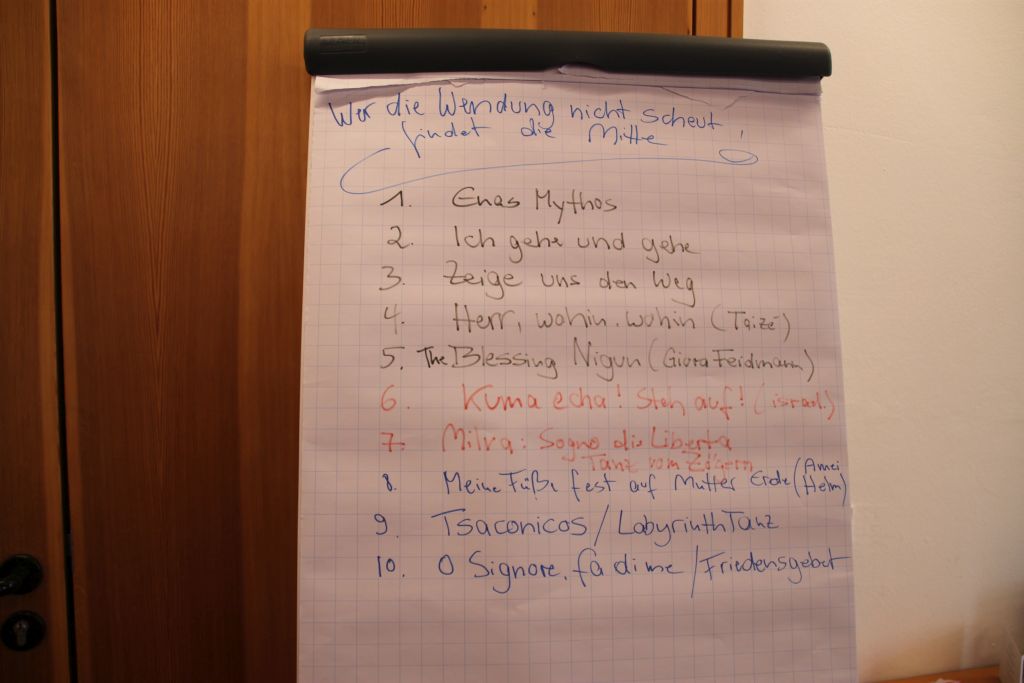 Wer die Wendung nicht scheut
findet die Mitte!
1. Enas Mythos
2. Ich gehe und gehe
3. Zeige uns den Weg
4. Herr, wohin. wohin (Taizé)
5. The Blessing Nigun (Giora Feidmann)
6. Kuma echa! Steh auf! (israel.)
7. Milva: Sogno di Liberta
Tanz vom Zögern
8. Meine Füße fest auf Mutter Erde (Anei
Helm)
9. Tsaconicos / LabyrinthTanz
10. O Signore, fa di me / Friedensgebet